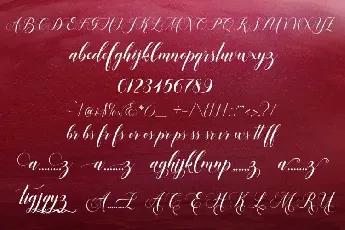 ABCDEFGHIJKLMNOPQRSTUVWXYZ
abcdefghijklmnopqrstuvwxyz
0123456789
br bs fr fs or os pr ps ss sr vr ws tt ff
a........z a........z aghjklmnp......z a........z
A.........Z A G E H K L M R U